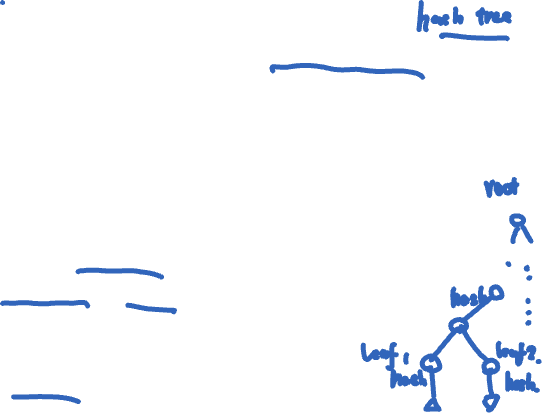 hash tree
root
hash
leaf1
hash
leaf2.
hash.